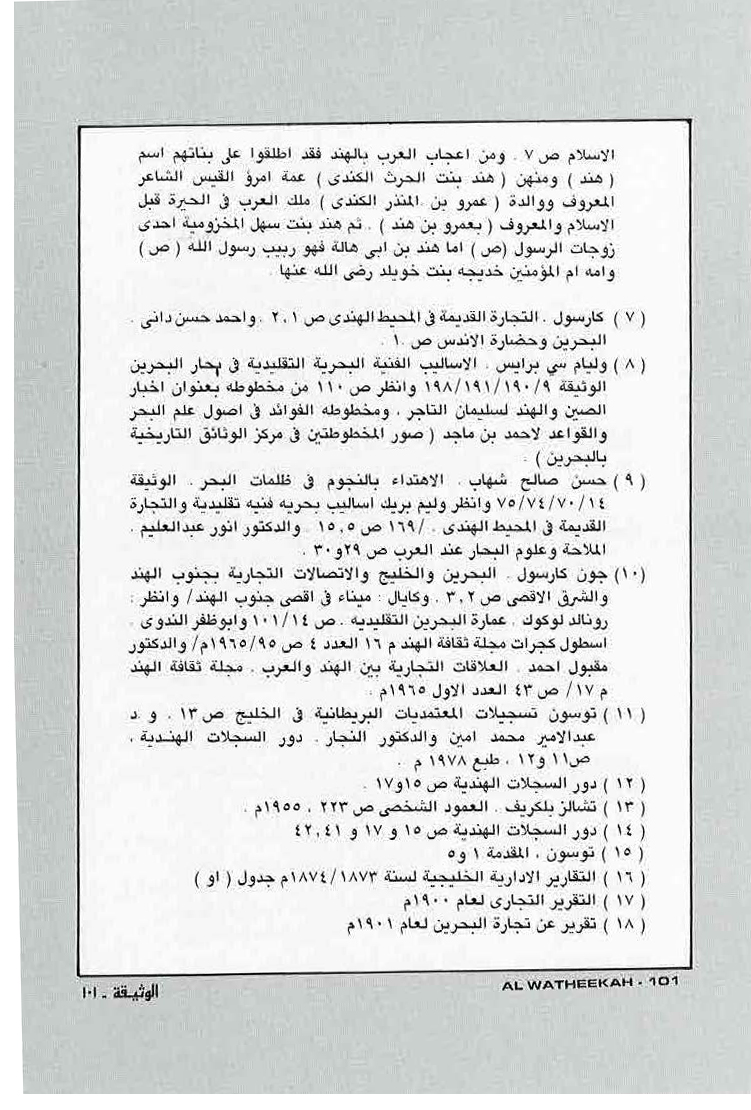 الاسلام ص ٧ . ومن اعجاب العرب بالهند فقد اطلقوا على بناتهم اسم
( هند ) ومنهن ( هند بنت الحرث الكندى ( عمة امرؤ القيس الشاعر
المعروف ووالدة ( عمرو بن المنذر الكندى ( ملك العرب فى الحيرة قبل
الاسلام والمعروف ( بعمرو بن هند ( . ثم هند بنت سهل المخزومية احدى
زوجات الرسول (ص ) اما هند بن ابى هالة فهو ربيب رسول الله ( ص )
وامه ام المؤمنين خديجه بنت خويلد رضى الله عنها .
( ٧ ) كارسول . التجارة القديمة فى المحيط الهندى ص ٢،١ . واحمد حسن دانى .
البحرين وحضارة الاندس ص ١٠ .
( ٨ ) وليام سي برايس . الاساليب الفنية البحرية التقليدية فى بحار البحرين
الوثيقة ١٩٨/١٩١/١٩٠/٩ وانظر ص ١١٠ من مخطوطه بعنوان اخبار
الصين والهند لسليمان التاجر ، ومخطوطه الفوائد فى اصول علم البحر
والقواعد لاحمد بن ماجد ( صور المخطوطتين فى مركز الوثائق التاريخية
بالبحرين ) .
( ٩ ) حسن صالح شهاب . الاهتداء بالنجوم فى ظلمات البحر . الوثيقة
٧٥/٧٤/٧٠/١٤ وانظر وليم بريك اساليب بحريه فنيه تقليدية والتجارة
القديمة فى المحيط الهندى . /١٦٩ ص ١٥،٥ . والدكتور انور عبدالعليم .
الملاحة وعلوم البحار عند العرب ص ٢٩و٣٠ .
(١٠) جون كارسول . البحرين والخليج والاتصالات التجارية بجنوب الهند
والشرق الاقصى ص ٣،٢ . وكايال : ميناء فى اقصى جنوب الهند/ وانظر :
رونالد لوكوك . عمارة البحرين التقليديه . ص ١٠١/١٤ وابوظفر الندوى .
اسطول كجرات مجلة ثقافة الهند م ١٦ العدد ٤ ص ١٩٦٥/٩٥م/ والدكتور
مقبول احمد . العلاقات التجارية بين الهند والعرب . مجلة ثقافة الهند
م ١٧ / ص ٤٣ العدد الاول ١٩٦٥م .
( ١١ ) توسون تسجيلات المعتمديات البريطانية فى الخليج ص ١٣ . و د
عبدالامير محمد امين والدكتور النجار . دور السجلات الهندية ،
ص١١ و١٢ ، طبع ١٩٧٨ م .
( ١٢ ) دور السجلات الهندية ص ١٥و١٧ .
( ١٣ ) تشالز بلكريف . العمود الشخصى ص ٢٢٣ ، ١٩٥٥م .
( ١٤ ) دور السجلات الهندية ص ١٥ و ١٧ و ٤٢،٤١
( ١٥ ) توسون ، المقدمة ١ و٥
( ١٦ ) التقارير الادارية الخليجية لسنة ١٨٧٤/١٨٧٣م جدول ( او )
( ١٧ ) التقرير التجارى لعام ١٩٠٠م
( ١٨ ) تقرير عن تجارة البحرين لعام ١٩٠١م
AL WATHEEKAH - 101
الوثيقة - ١٠١